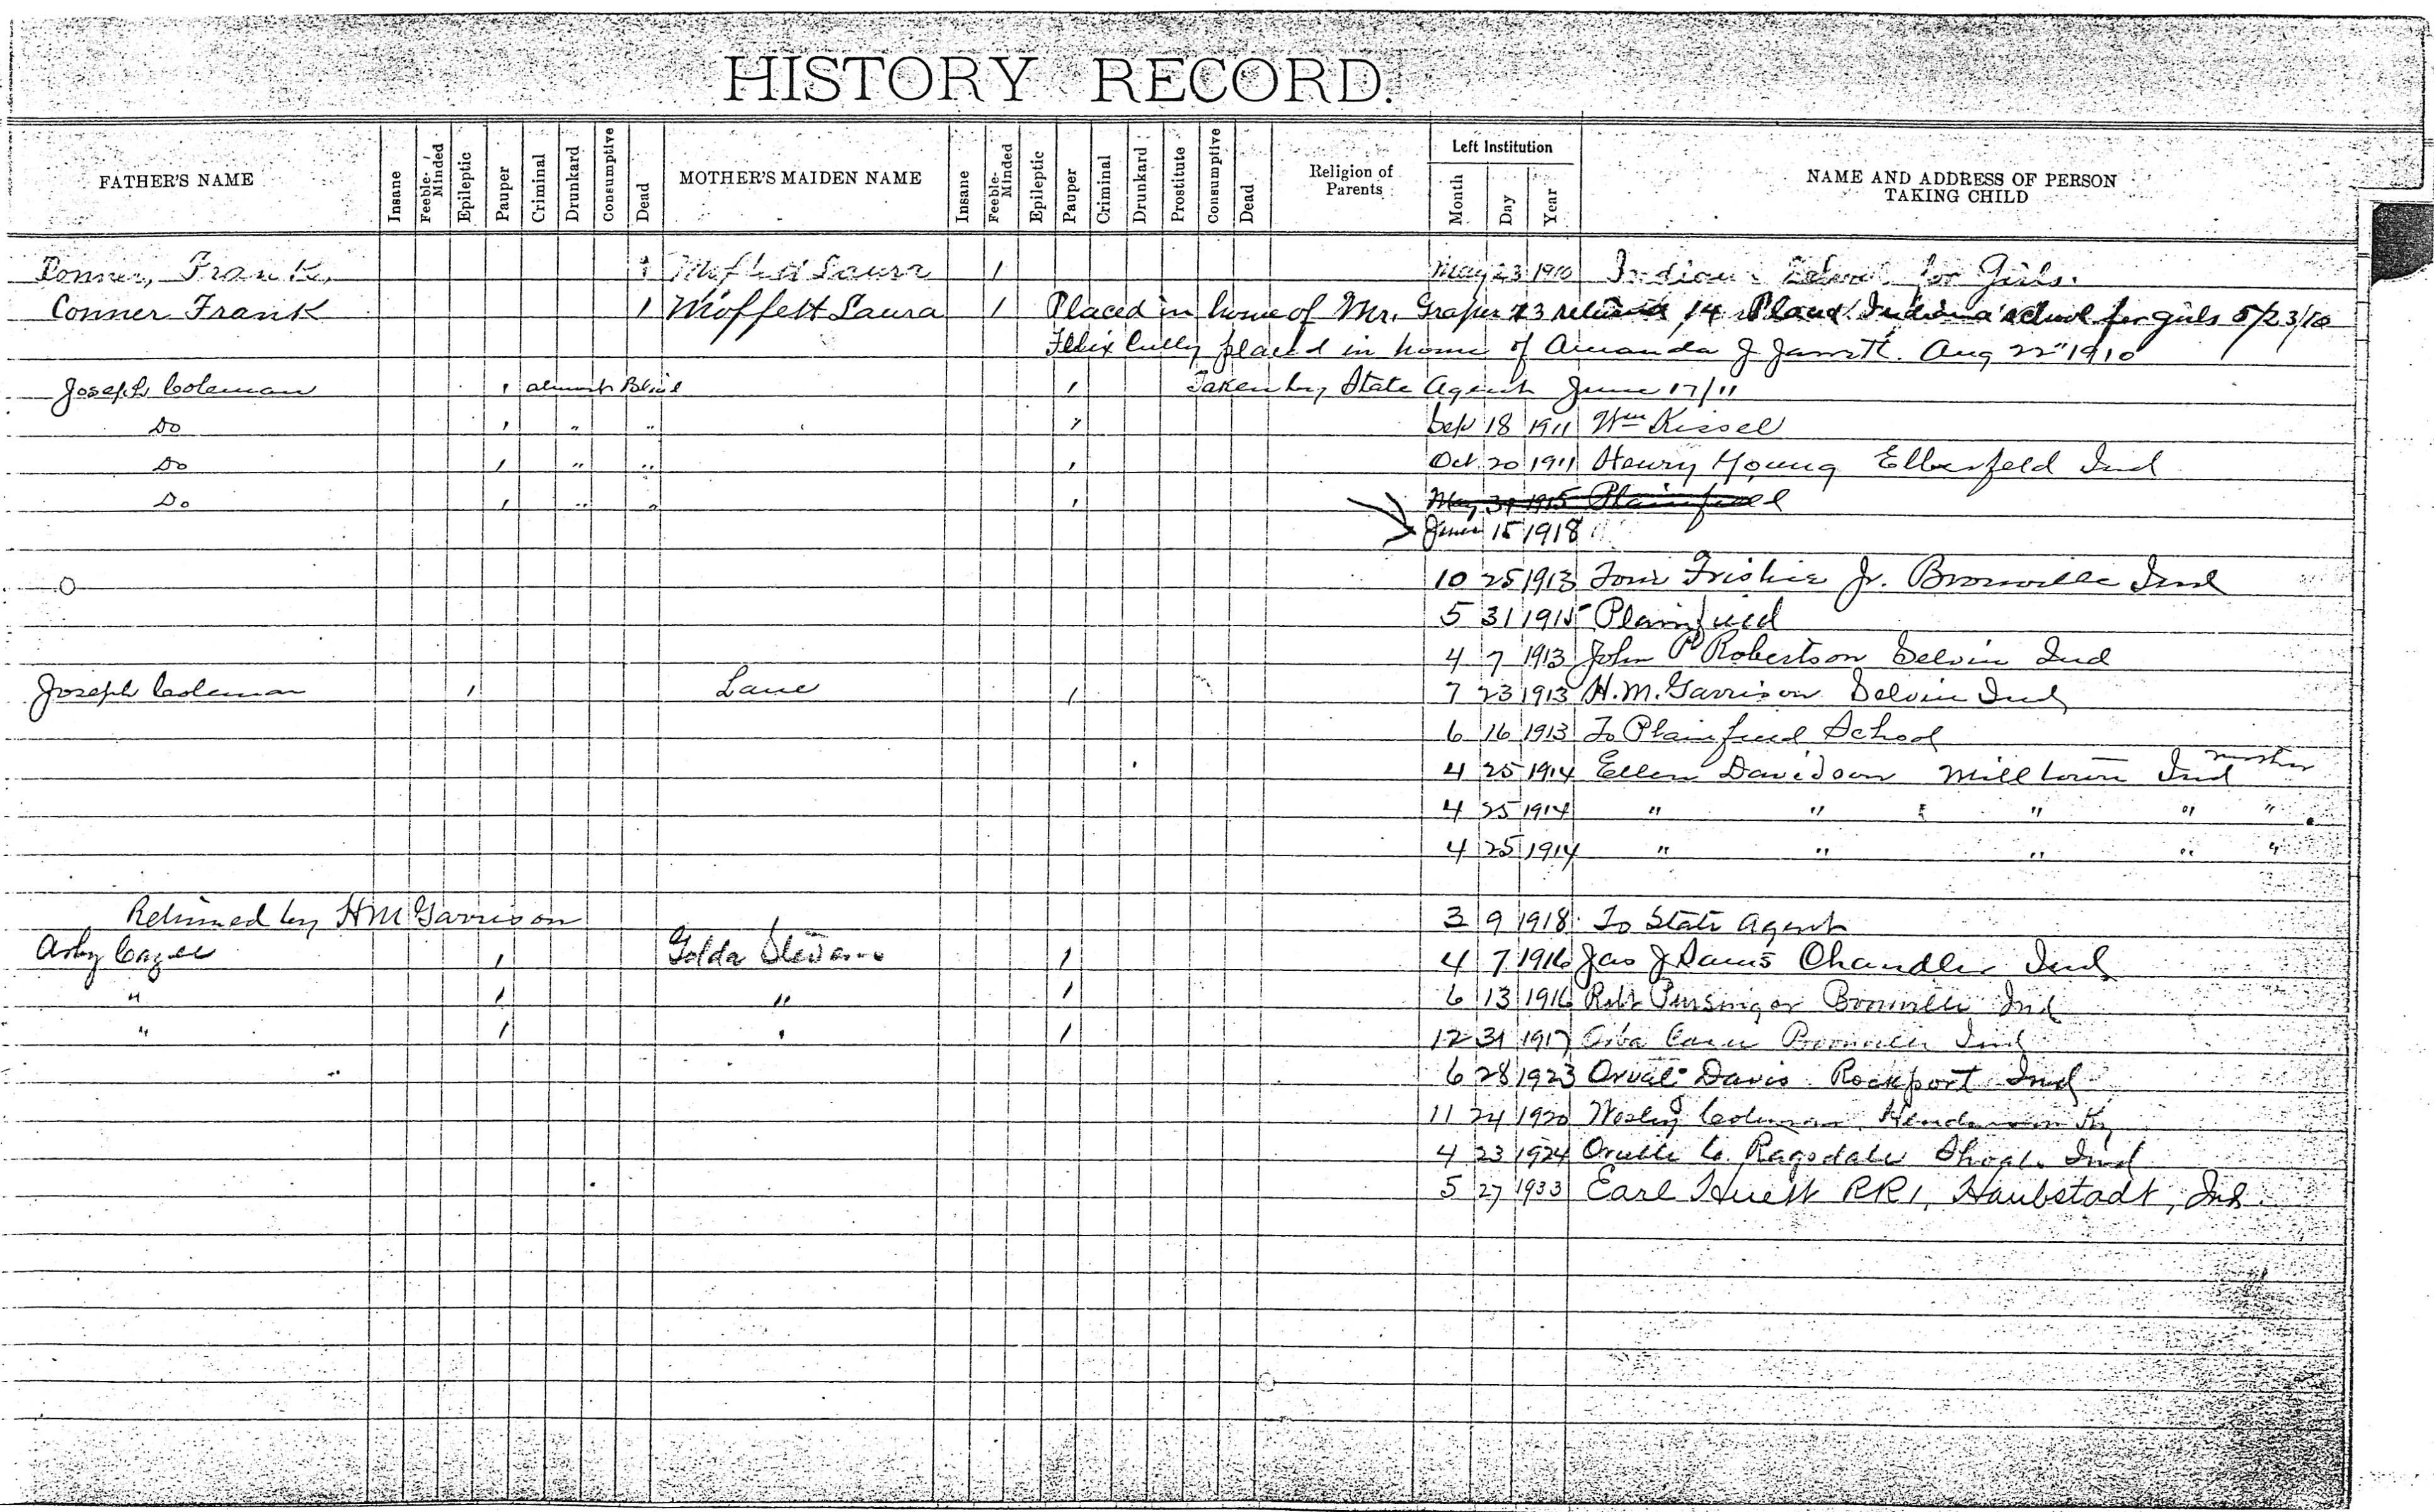 HISTORY RECORD.
FATHER'S NAME Insane Feeble-Minded Epileptic Pauper Criminal Drunkard Consumptive Dead MOTHER'S MAIDEN NAME Insane Feeble-Minded Epileptic Pauper Criminal Drunkard Prostitute Consumptive Dead Religion of Parents Left Institution Month Day Year NAME AND ADDRESS OF PERSON TAKING CHILD
Conner, Frank, 1 Moffett Laura 1 May 23 1910 Indiana School for Girls.
Conner Frank 1 Moffett Laura 1 Placed in home of Mr. 14 Placed Indiana school for girls 5/23/10
placed in home of Amanda J Aug 22" 1910
Joseph Coleman 1 almost Blind 1 Taken by State Agent June 17/11
Do 1 " " 1 Sep 18 1911 Wm Kissel
Do 1 " " 1 Oct 20 1911 Henry Young Elberfeld Ind
Do 1 " " 1 May 31 1915 Plainfield
June 15 1918
10 25 1913 Jr. Boonville Ind
5 31 1915 Plainfield
4 7 1913 John P Robertson Selvin Ind
Joseph Coleman 1 Lane 1 7 23 1913 H.M. Garrison Selvin Ind
6 16 1913 To Plainfield School
4 25 1914 Ellen Davidson Milltown Ind mother
4 25 1914 " " " " "
4 25 1914 " " " " "
Returned by HM Garrison 3 9 1918 To State Agent
Cazee 1 Golda Stevens 1 4 7 1916 Jas J Davis Chandler Ind
" 1 " 1 6 13 1916 Robt Pursinger Boonville Ind
" 1 " 1 12 31 1917 Boonville Ind
6 28 1923 Orval Davis Rockport Ind
11 24 1920 Wesley Coleman Henderson Ky
4 23 1924 Orville C. Ragsdale Shoals Ind
5 27 1933 Earl RR1, Haubstadt, Ind.